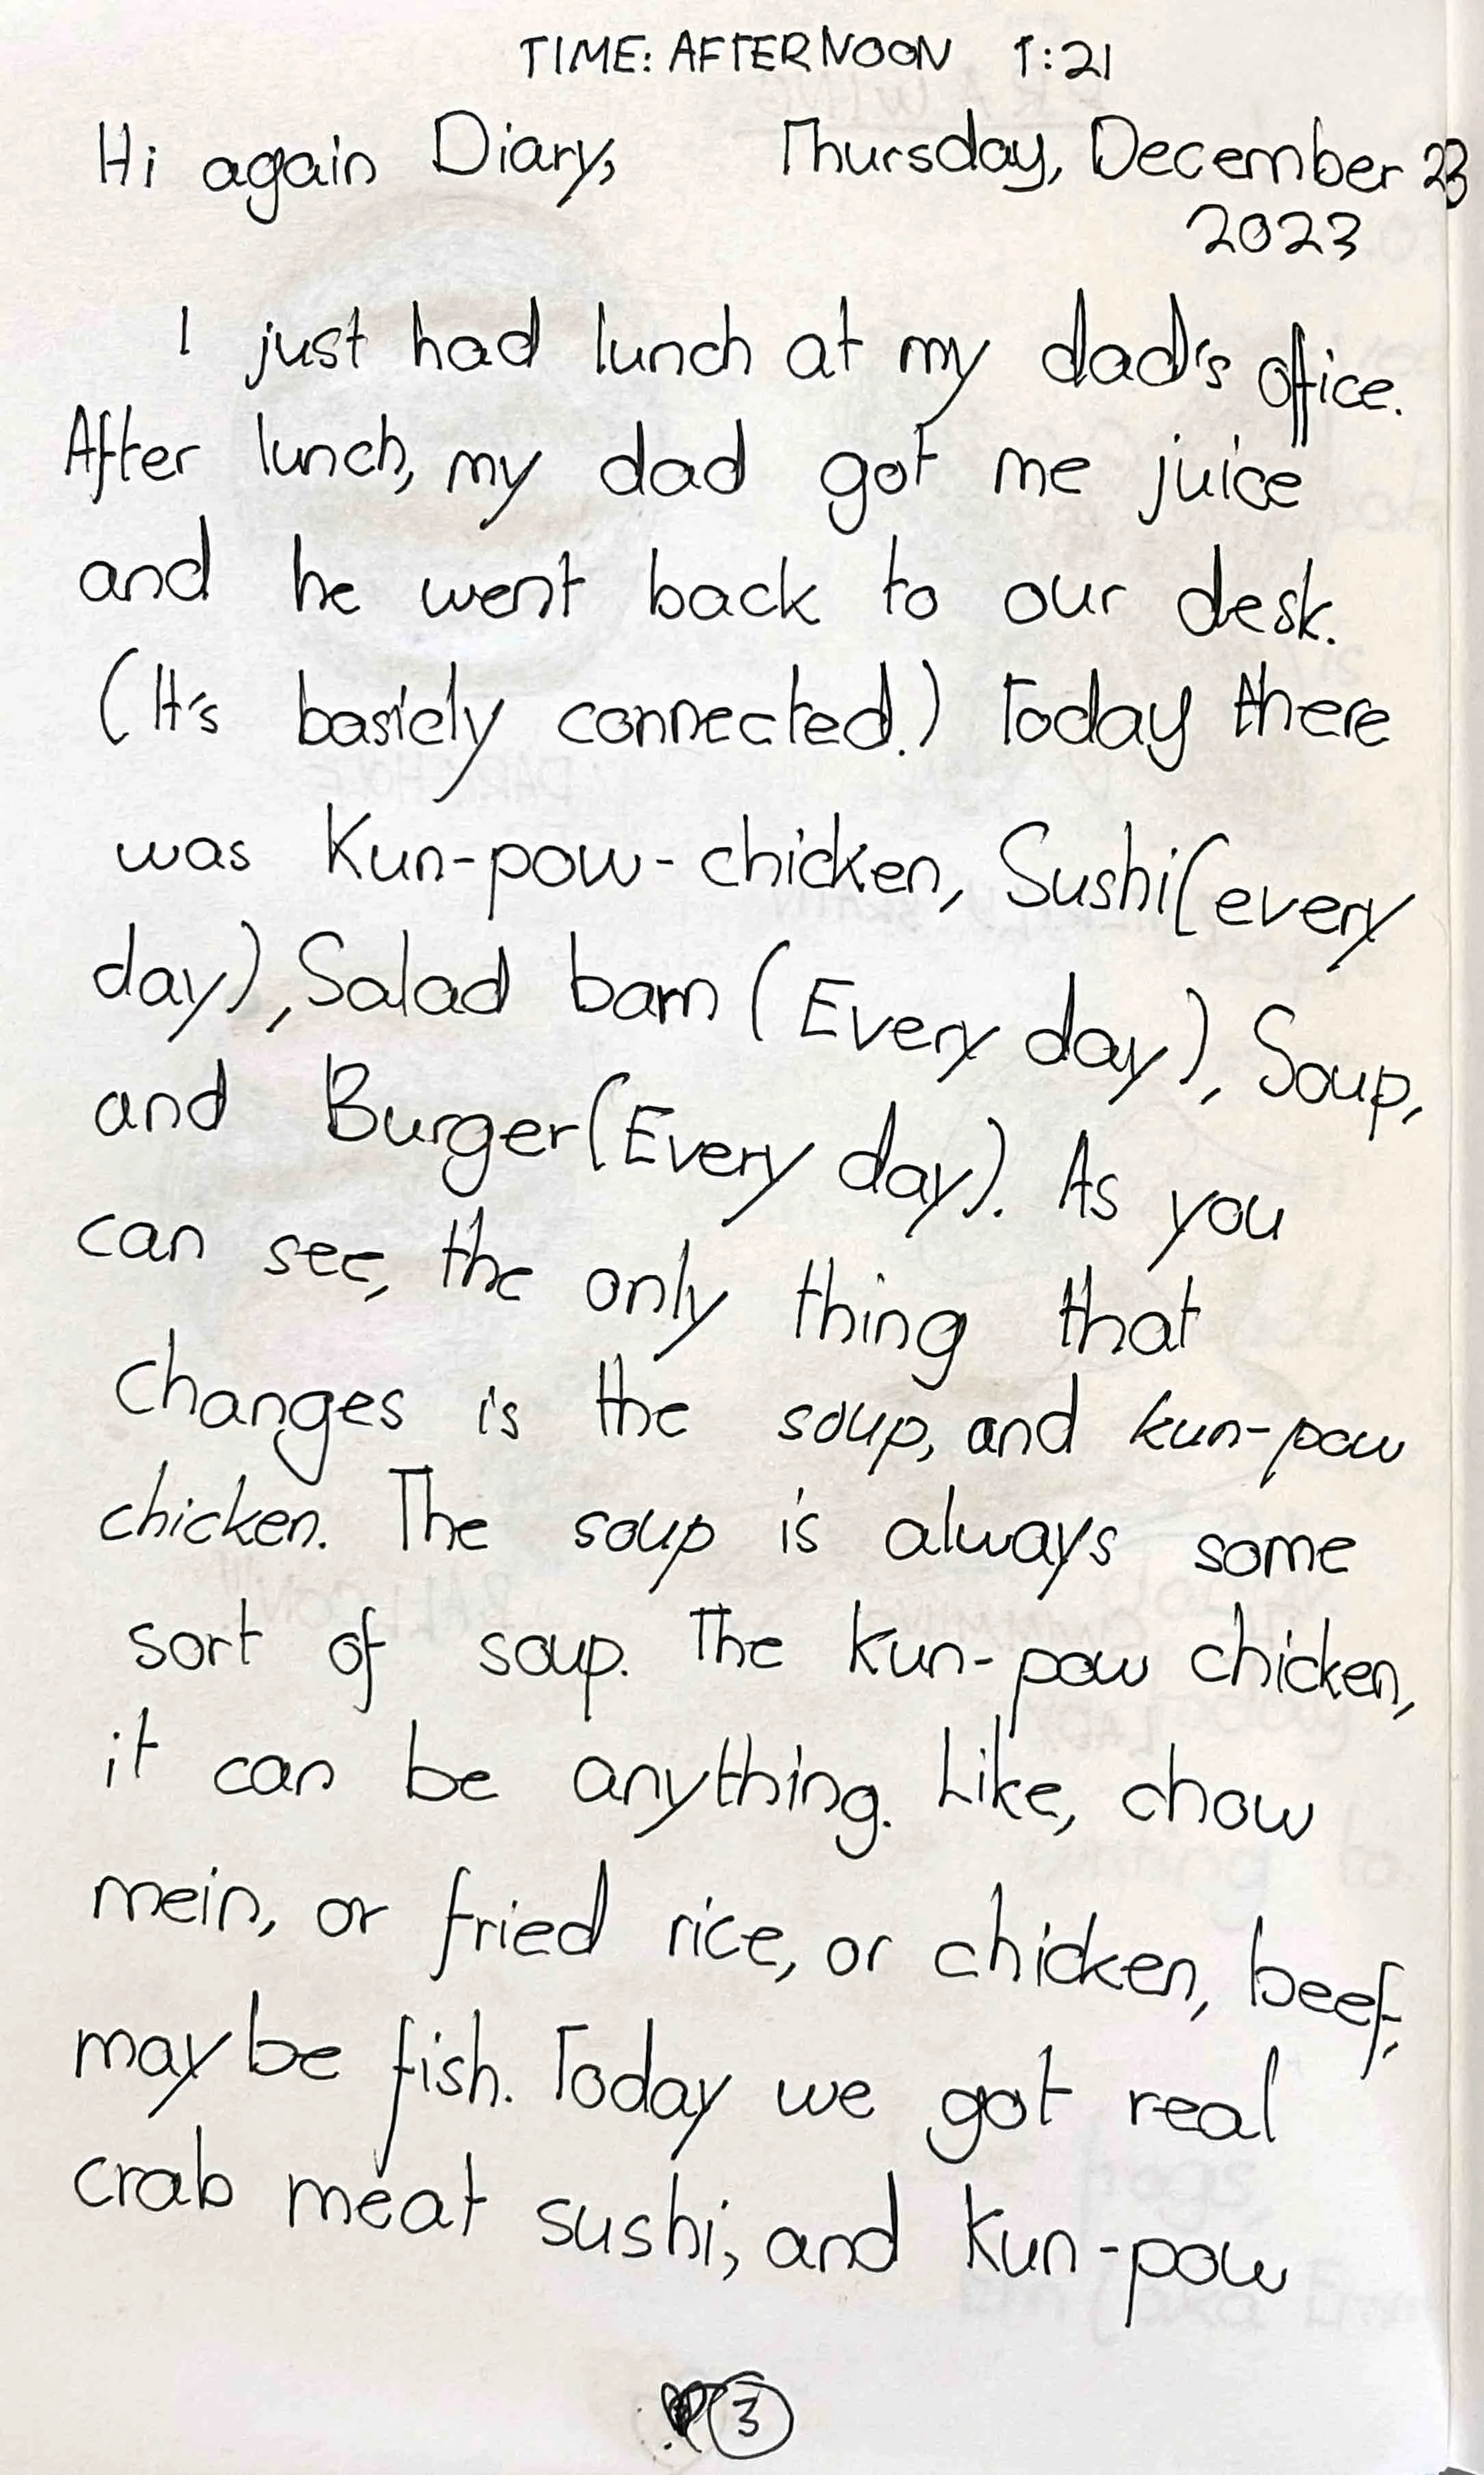 TIME: AFTERNOON 1:21
Hi again Diary, Thursday, December 23
2023
I just had lunch at my dad's office.
After lunch, my dad got me juice
and he went back to our desk.
(It's basicly connected.) Today there
was Kun-pow-chicken, Sushi(every
day), Salad barn (Every day), Soup,
and Burger(Every day). As you
can see, the only thing that
changes is the soup, and kun-pow
chicken. The soup is always some
sort of soup. The kun-pow chicken,
it can be anything. Like, chow
mein, or fried rice, or chicken, beef,
maybe fish. Today we got real
crab meat sushi, and kun-pow
3